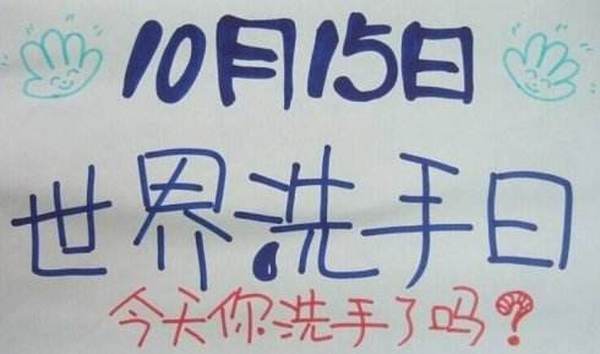 10月15日
世界洗手日
今天你洗手了吗?